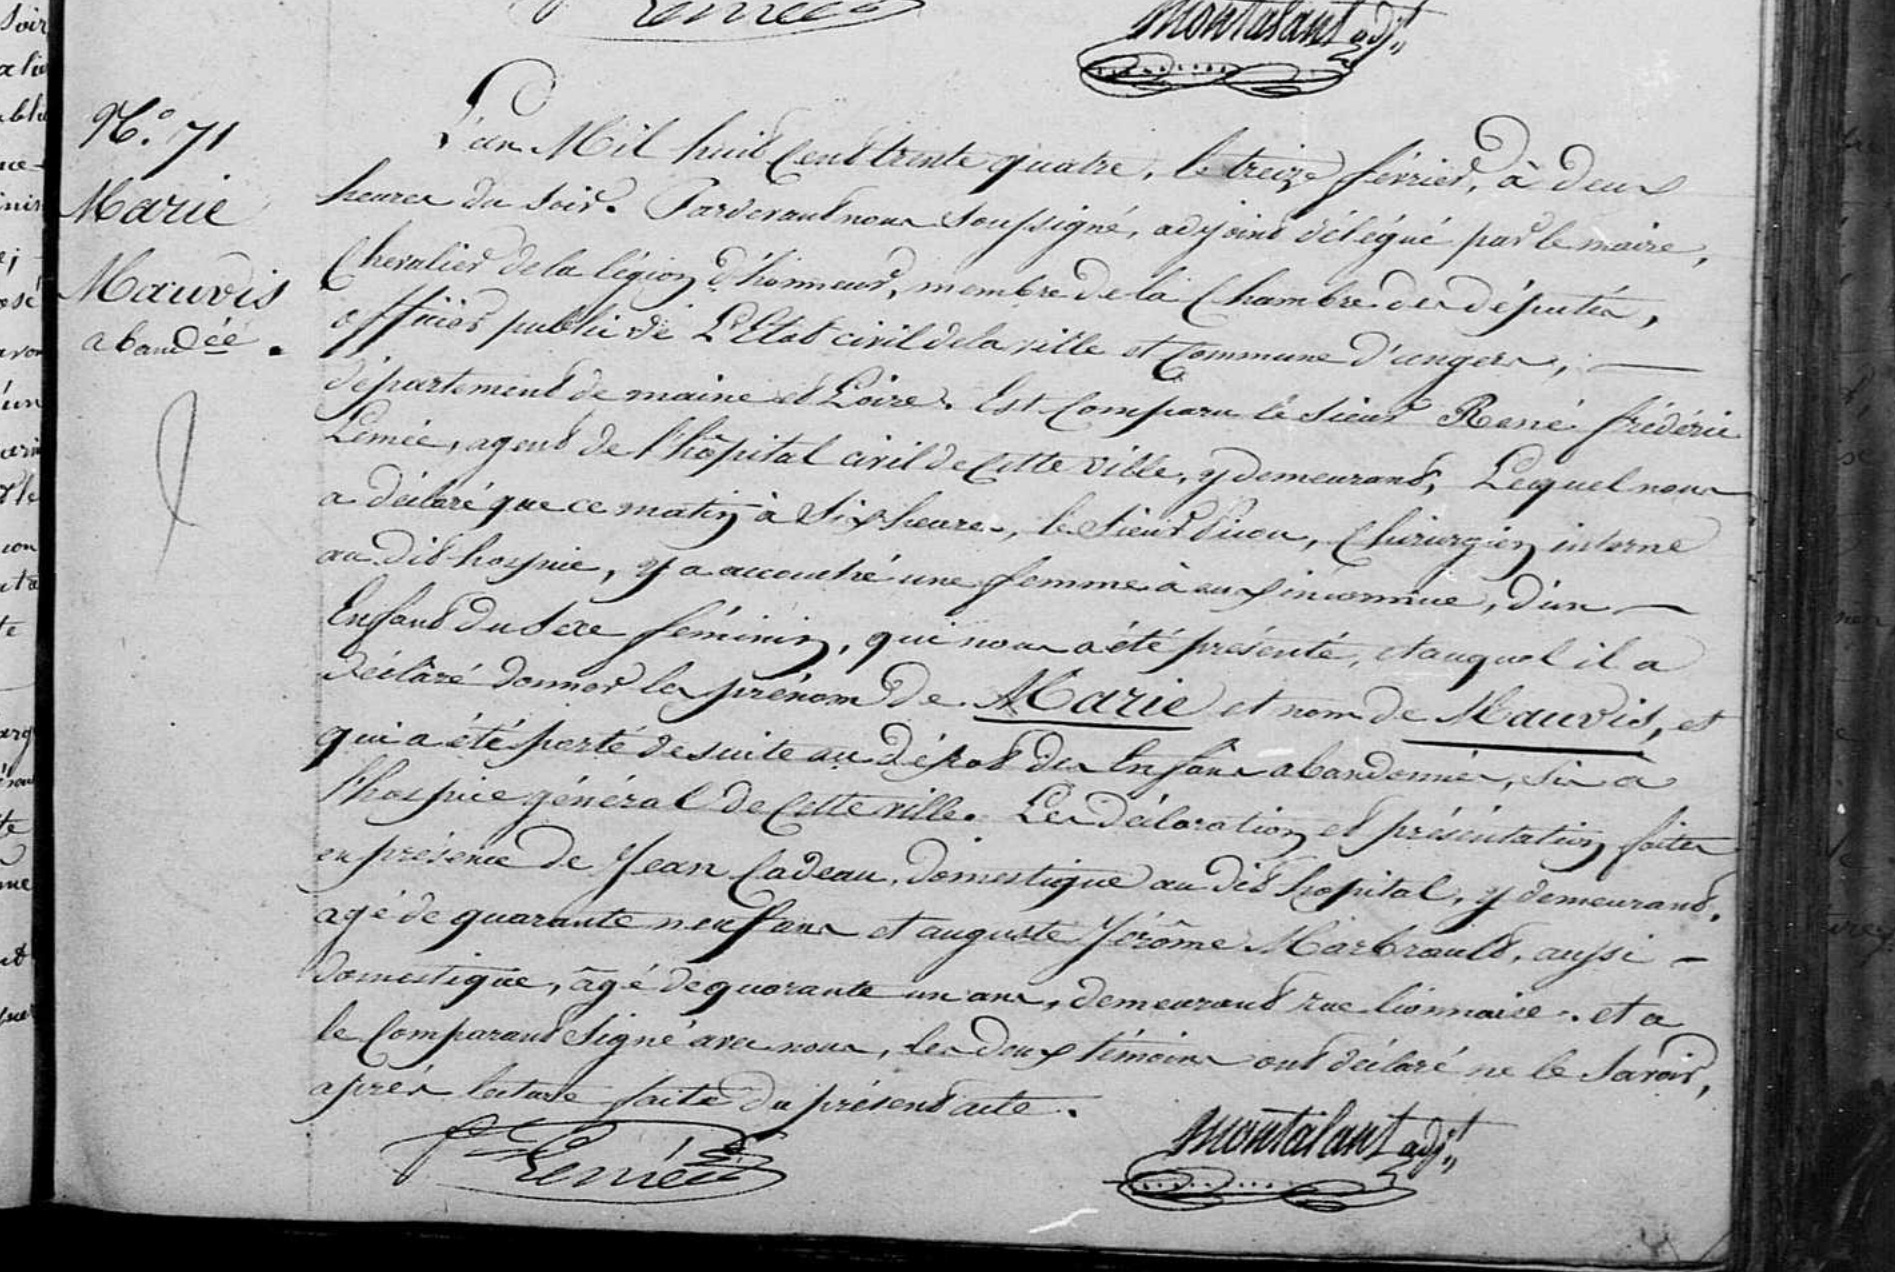 Lemée
Montalant adjt
N.° 71
Marie
Mauvis
aband.ée
L'an Mil huit Cent trente quatre, le treize février, à deux
heures du Soir. Pardevant nous Soussigné, adjoint délégué par le maire,
Chevalier de la légion d'honneur, membre de la Chambre des députés,
officier public de L'Etat civil de la ville et Commune d'angers,
département de maine et Loire. Est Comparu le Sieur René frédéric
Lemée, agent de l'hôpital civil de Cette ville, y demeurant, Lequel nous
a déclaré que ce matin à Six heures, le Sieur, Chirurgien interne
au dit hospice, y a accouché une femme à eux inconnue, d'un
Enfant du Sexe féminin, qui nous a été présenté, et auquel il a
déclaré donner les prénom de Marie et nom de Mauvis, et
qui a été porté de suite au dépot des Enfans abandonnés, Sis à
l'hospice général de Cette ville. Les déclaration et présentation faites
en présence de Jean Cadeau, domestique au dit hopital, y demeurant,
agé de quarante neuf ans et auguste Jérôme Marbrault, aussi
domestique, âgé de quarante un ans, demeurant rue lionnaise. et a
le Comparant Signé avec nous, les deux témoins ont déclaré ne le Savoir,
après lecture faite du présent acte.
Lemée
Montalant adjt